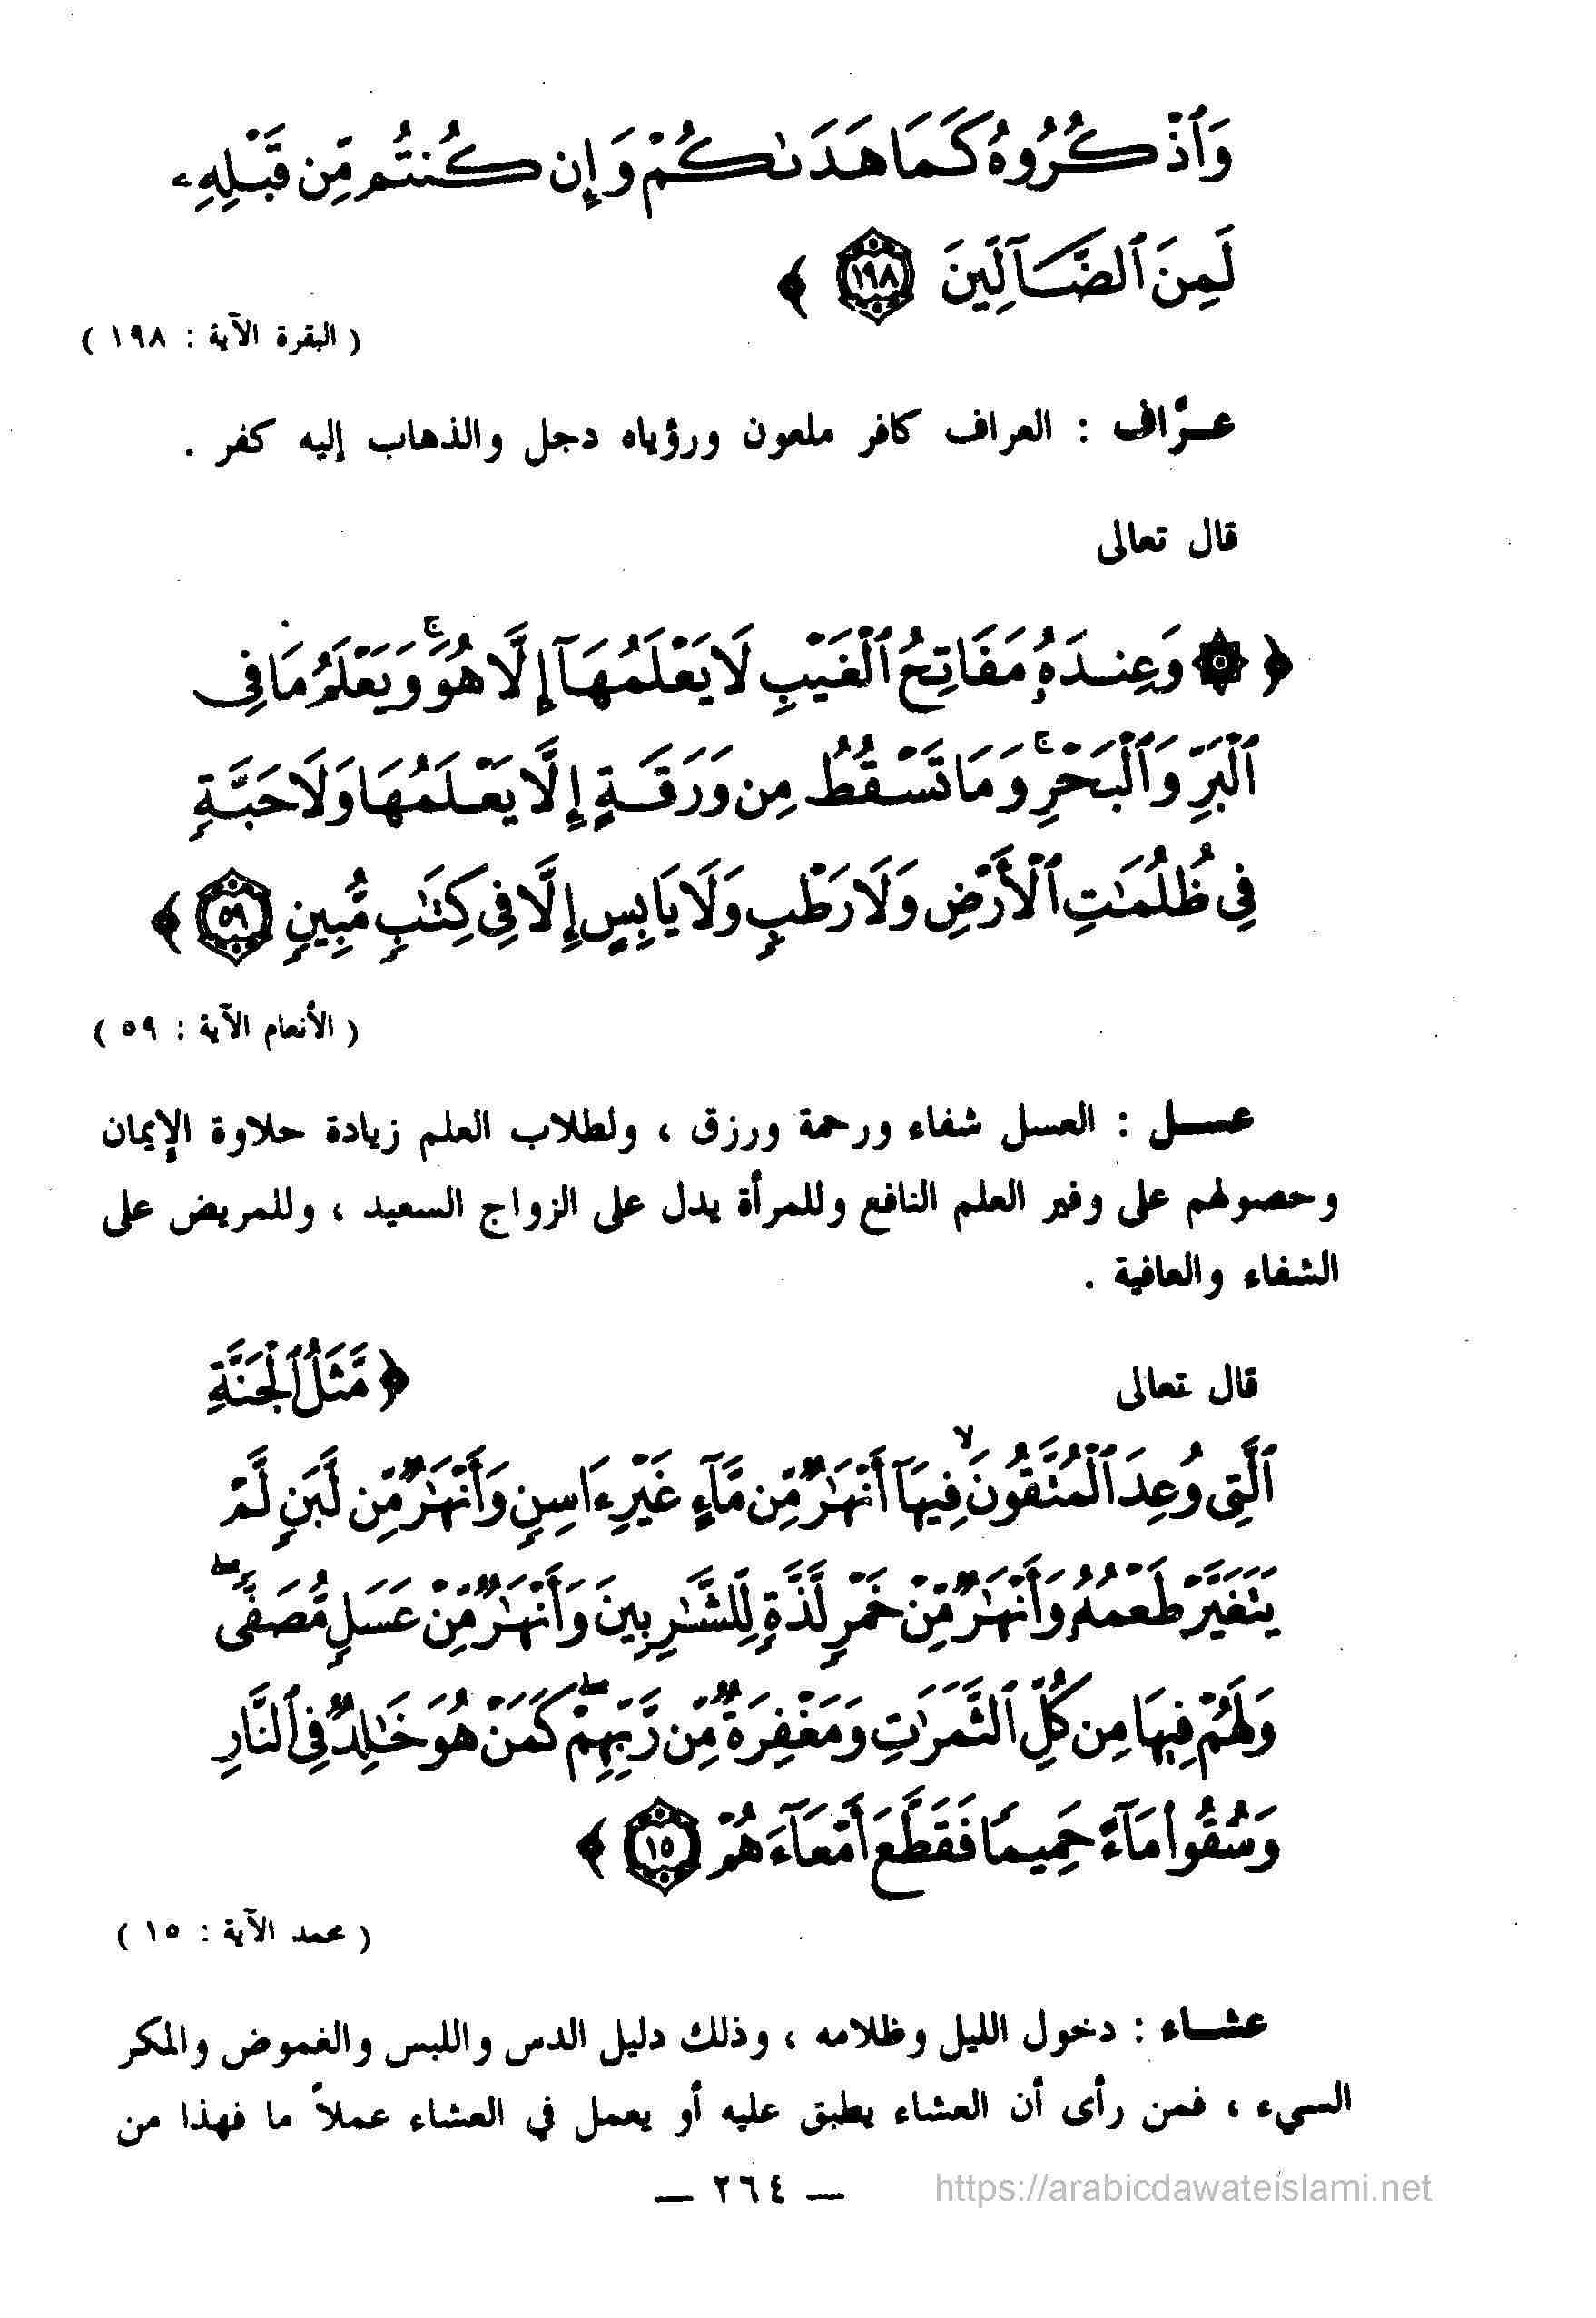 وَٱذْكُرُوهُ كَمَا هَدَىٰكُمْ وَإِن كُنتُم مِّن قَبْلِهِۦ
لَمِنَ ٱلضَّآلِّينَ ١٩٨ ﴾
( البقرة الآية : ١٩٨ )
عـرَّاف : العراف كافر ملعون ورؤياه دجل والذهاب إليه كفر .
قال تعالى
﴿ ۞ وَعِندَهُۥ مَفَاتِحُ ٱلْغَيْبِ لَا يَعْلَمُهَآ إِلَّا هُوَ ۚ وَيَعْلَمُ مَا فِى
ٱلْبَرِّ وَٱلْبَحْرِ ۚ وَمَا تَسْقُطُ مِن وَرَقَةٍ إِلَّا يَعْلَمُهَا وَلَا حَبَّةٍ
فِى ظُلُمَٰتِ ٱلْأَرْضِ وَلَا رَطْبٍ وَلَا يَابِسٍ إِلَّا فِى كِتَٰبٍ مُّبِينٍ ٥٩ ﴾
( الأنعام الآية : ٥٩ )
عســل : العسل شفاء ورحمة ورزق ، ولطلاب العلم زيادة حلاوة الإيمان
وحصولهم على وفير العلم النافع وللمرأة يدل على الزواج السعيد ، وللمريض على
الشفاء والعافية .
قال تعالى ﴿ مَّثَلُ ٱلْجَنَّةِ
ٱلَّتِى وُعِدَ ٱلْمُتَّقُونَ ۙ فِيهَآ أَنْهَٰرٌ مِّن مَّآءٍ غَيْرِ ءَاسِنٍ وَأَنْهَٰرٌ مِّن لَّبَنٍ لَّمْ
يَتَغَيَّرْ طَعْمُهُۥ وَأَنْهَٰرٌ مِّنْ خَمْرٍ لَّذَّةٍ لِّلشَّٰرِبِينَ وَأَنْهَٰرٌ مِّنْ عَسَلٍ مُّصَفًّى ۖ
وَلَهُمْ فِيهَا مِن كُلِّ ٱلثَّمَرَٰتِ وَمَغْفِرَةٌ مِّن رَّبِّهِمْ ۖ كَمَنْ هُوَ خَٰلِدٌ فِى ٱلنَّارِ
وَسُقُوا۟ مَآءً حَمِيمًا فَقَطَّعَ أَمْعَآءَهُمْ ١٥ ﴾
( محمد الآية : ١٥ )
عشــاء : دخول الليل وظلامه ، وذلك دليل الدس واللبس والغموض والمكر
السيء ، فمن رأى أن العشاء يطبق عليه أو يعمل في العشاء عملاً ما فهذا من
— ٢٦٤ —
https://arabicdawateislami.net